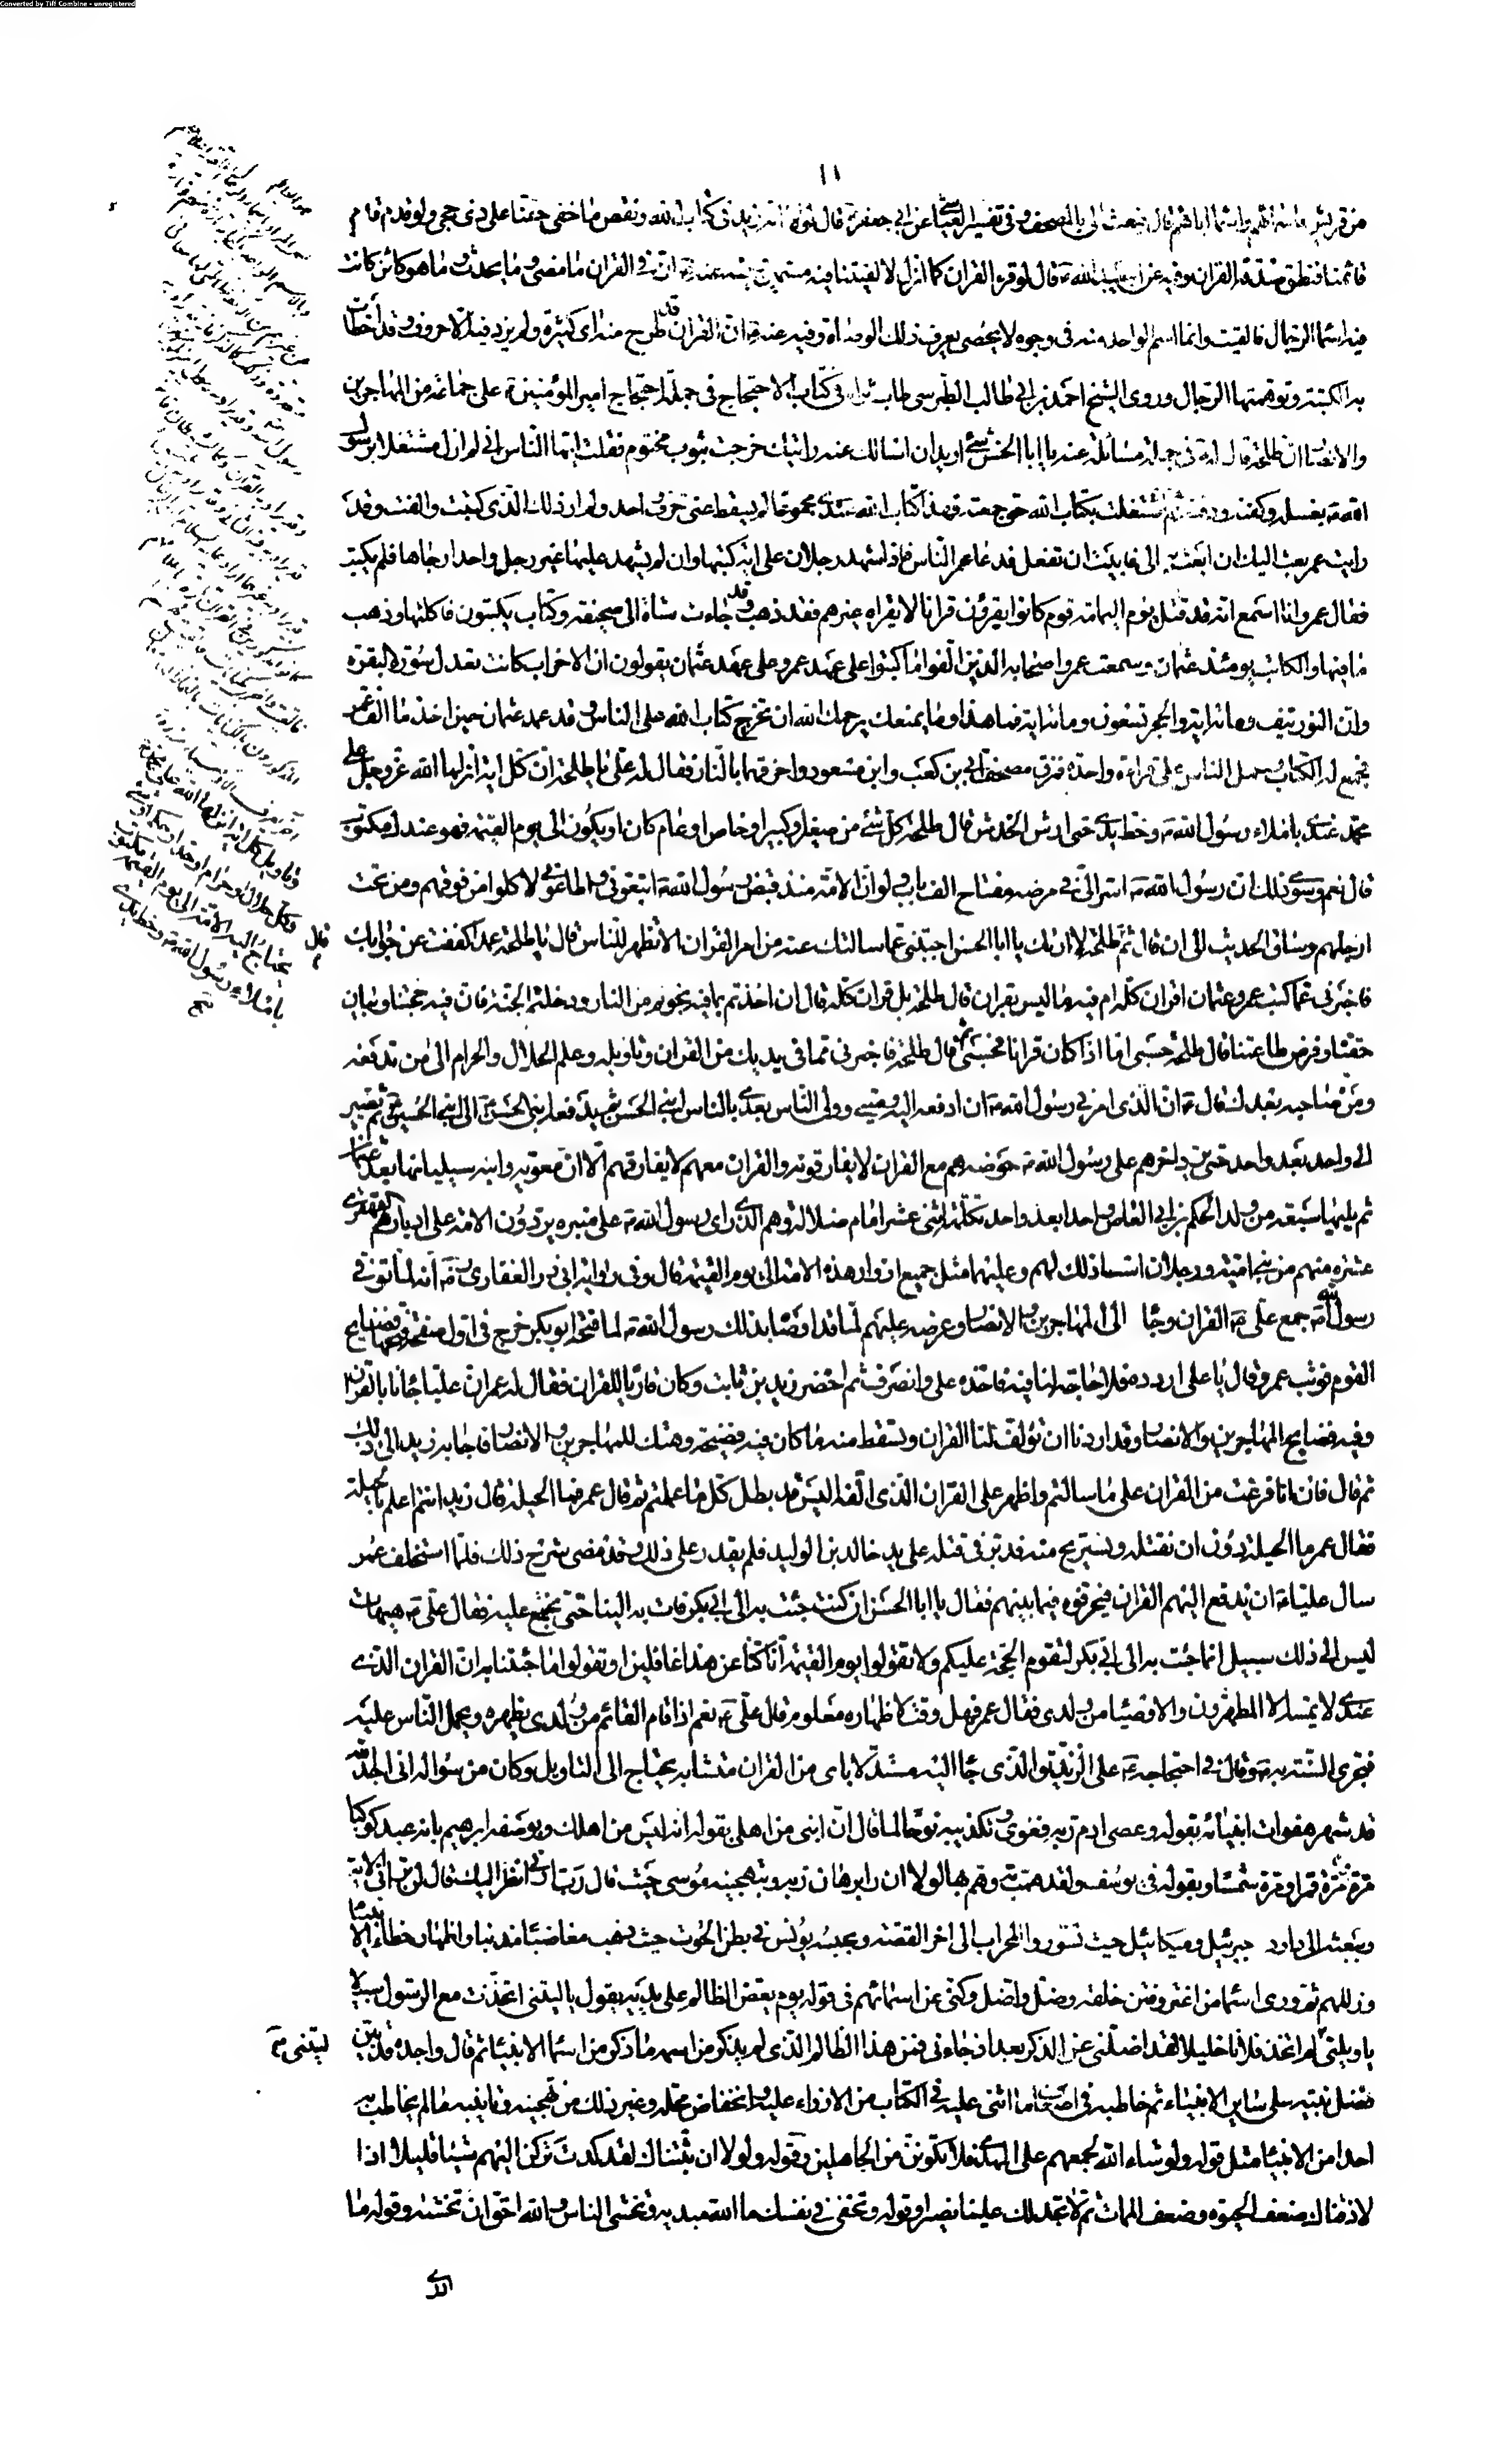 Converted by Tiff Combine - unregistered
١١
من قريش باسمائهم واسماء ابائهم قال فبعث الى بالمصحف وفى تفسير العياشى عن ابى جعفر ع قال لولا انه زيد فى كتاب الله ونقص ما خفى حقنا على ذى حجى ولو قدم قام
قائمنا فنطق صدقه القران وفيه عن ابى عبد الله ع قال لو قرء القران كما انزل لالفيتنا فيه مسمين وفيه عنه ع ان فى القران ما مضى وما يحدث وما هو كائن كانت
فيه اسماء الرجال فالقيت وانما الاسم الواحد منه فى وجوه لا يحصى يعرف ذلك الوصاة وفيه عنه ع ان القران قد طرح منه اى كثيرة ولم يزد فيه الا حروف وقد اخطات
به الكتبة وتوهمتها الرجال وروى الشيخ احمد بن ابى طالب الطبرسى طاب ثراه فى كتاب الاحتجاج فى جملة احتجاج امير المؤمنين ع على جماعة من المهاجرين
والانصار ان طلحة قال له فى جملة مسائله عنه يا ابا الحسن شئ اريد ان اسالك عنه رايتك خرجت بثوب مختوم فقلت ايها الناس انى لم ازل مشتغلا برسول
الله ص بغسله وكفنه ودفنه ثم اشتغلت بكتاب الله حتى جمعته فهذا كتاب الله عندى مجموعا لم يسقط عنى حرف واحد ولم ار ذلك الذى كتبت والفت وقد
رايت عمر بعث اليك ان ابعث به الى فابيت ان تفعل فدعا عمر الناس فاذا شهد رجلان على اية كتبها وان لم يشهد عليها غير رجل واحد ارجاها فلم يكتب
فقال عمر وانا اسمع انه قد قتل يوم اليمامة قوم كانوا يقرؤن قرانا لا يقراه غيرهم فقد ذهب وقد جاءت شاة الى صحيفة وكتاب يكتبون فاكلتها وذهب
ما فيها والكاتب يومئذ عثمان وسمعت عمر واصحابه الذين الفوا ما كتبوا على عهد عمر وعلى عهد عثمان يقولون ان الاحزاب كانت تعدل سورة البقرة
وان النور نيف ومائة اية والحجر تسعون ومائة اية فما هذا وما يمنعك يرحمك الله ان تخرج كتاب الله على الناس وقد عمد عثمان حين اخذ ما الف عمر
فجمع له الكتاب وحمل الناس على قراءة واحدة فمزق مصحف ابى بن كعب وابن مسعود واحرقهما بالنار فقال له على ع يا طلحة ان كل اية انزلها الله عز وجل على
محمد عندى باملاء رسول الله ص وخط يدى حتى ارش الخدش قال طلحة كل شئ من صغير او كبير او خاص او عام كان او يكون الى يوم القيمة فهو عندك مكتوب
قال نعم وسوى ذلك ان رسول الله ص اسر الى فى مرضه مفتاح الف باب ولو ان الامة منذ قبض رسول الله ص اتبعونى واطاعونى لاكلوا من فوقهم ومن تحت
ارجلهم وساق الحديث الى ان قال ثم قال طلحة لا اراك يا ابا الحسن اجبتنى عما سالتك عنه من امر القران الا تظهره للناس قال يا طلحة عمدا كففت عن جوابك
فاخبرنى عما كتب عمر وعثمان اقران كله ام فيه ما ليس بقران قال طلحة بل قران كله قال ان اخذتم بما فيه نجوتم من النار ودخلتم الجنة فان فيه حجتنا وبيان
حقنا وفرض طاعتنا قال طلحة حسبى اما اذا كان قرانا فحسبى ثم قال طلحة فاخبرنى عما فى يديك من القران وتاويله وعلم الحلال والحرام الى من تدفعه
ومن صاحبه بعدك قال ع ان الذى امرنى رسول الله ص ان ادفعه اليه وصيى وولى الناس بعدى بالناس ابنى الحسن ثم يدفعه ابنى الحسن الى ابنى الحسين ثم يصير
الى واحد بعد واحد من ولد الحسين حتى يرد اخرهم على رسول الله ص حوضه هم مع القران لا يفارقونه والقران معهم لا يفارقهم الا ان معوية وابنه سيليانها بعد عثمان
ثم يليها سبعة من ولد الحكم بن ابى العاص واحدا بعد واحد تكملة اثنى عشر امام ضلالة وهم الذى راى رسول الله ص على منبره يردون الامة على ادبارهم القهقرى
عشرة منهم من بنى امية ورجلان اسسا ذلك لهم وعليهما مثل جميع اوزار هذه الامة الى يوم القيمة قال وفى رواية ابى ذر الغفارى رض انه لما توفى
رسول الله ص جمع على ع القران وجا الى المهاجرين والانصار وعرضه عليهم لما قد اوصاه بذلك رسول الله ص فلما فتحه ابو بكر خرج فى اول صفحة فتحها فضايح
القوم فوثب عمر وقال يا على اردده فلا حاجة لنا فيه فاخذه على وانصرف ثم احضر زيد بن ثابت وكان قاريا للقران فقال له عمر ان عليا جانا بالقران
وفيه فضايح المهاجرين والانصار وقد اردنا ان تؤلف لنا القران وتسقط منه ما كان فيه فضيحة وهتك للمهاجرين والانصار فاجابه زيد الى ذلك
ثم قال فان انا فرغت من القران على ما سالتم واظهر على القران الذى الفه اليس قد بطل كل ما عملتم ثم قال عمر فما الحيلة قال زيد انتم اعلم بالحيلة
فقال عمر ما الحيلة دون ان نقتله ونستريح منه فدبر فى قتله على يد خالد بن الوليد فلم يقدر على ذلك وقد مضى شرح ذلك فلما استخلف عمر
سال عليا ع ان يدفع اليهم القران فيحرفوه فيما بينهم فقال يا ابا الحسن ان كنت جئت به الى ابى بكر فات به الينا حتى نجتمع عليه فقال على ع هيهات
ليس الى ذلك سبيل انما جئت به الى ابى بكر لتقوم الحجة عليكم ولا تقولوا يوم القيمة انا كنا عن هذا غافلين او تقولوا ما جئتنا به ان القران الذى
عندى لا يمسه الا المطهرون والاوصياء من ولدى فقال عمر فهل وقت لاظهاره معلوم قال على ع نعم اذا قام القائم من ولدى يظهره ويحمل الناس عليه
فتجرى السنة به وقال فى احتجاجه ع على الزنديق الذى جا اليه مستدلا باى من القران متشابه يحتاج الى التاويل وكان من سؤاله انى اجد الله
قد شهر هفوات انبيائه بقوله وعصى ادم ربه فغوى وتكذيبه نوحا لما قال ان ابنى من اهلى بقوله انه ليس من اهلك وبوصفه ابرهيم بانه عبد كوكبا
مرة ومرة قمرا ومرة شمسا وبقوله فى يوسف ولقد همت به وهم بها لولا ان راى برهان ربه وبتهجينه موسى حيث قال رب ارنى انظر اليك قال لن ترانى الاية
وببعثه الى داود جبرئيل وميكائيل حيث تسوروا المحراب الى اخر القصة وبحبسه يونس فى بطن الحوت حيث ذهب مغاضبا مذنبا واظهار خطاء الانبياء
وزللهم ثم ورى اسماء من اغتر وفتن خلقه وضل واضل وكنى عن اسمائهم فى قوله يوم يعض الظالم على يديه يقول يا ليتنى اتخذت مع الرسول سبيلا
يا ويلتى لم اتخذ فلانا خليلا لقد اضلنى عن الذكر بعد اذ جاءنى فمن هذا الظالم الذى لم يذكر من اسمه ما ذكر من اسماء الانبياء ثم قال واجده قد بين
ليتنى صح
فضل نبيه على ساير الانبياء ثم خاطبه فى اضعاف ما اثنى عليه فى الكتاب من الازراء عليه وانخفاض محله وغير ذلك من تهجينه وتانيبه ما لم يخاطب به
احدا من الانبياء مثل قوله ولو شاء الله لجمعهم على الهدى فلا تكونن من الجاهلين وقوله ولولا ان ثبتناك لقد كدت تركن اليهم شيئا قليلا اذا
لاذقناك ضعف الحيوة وضعف الممات ثم لا تجد لك علينا نصيرا وقوله وتخفى فى نفسك ما الله مبديه وتخشى الناس والله احق ان تخشيه وقوله ما
ادرى
وتاويل كل اية انزلها الله على محمد ص
وكل حلال او حرام او حد او حكم او شئ
يحتاج اليه الامة الى يوم القيمة مكتوب
باملاء رسول الله ص وخط يدى
صح
قال